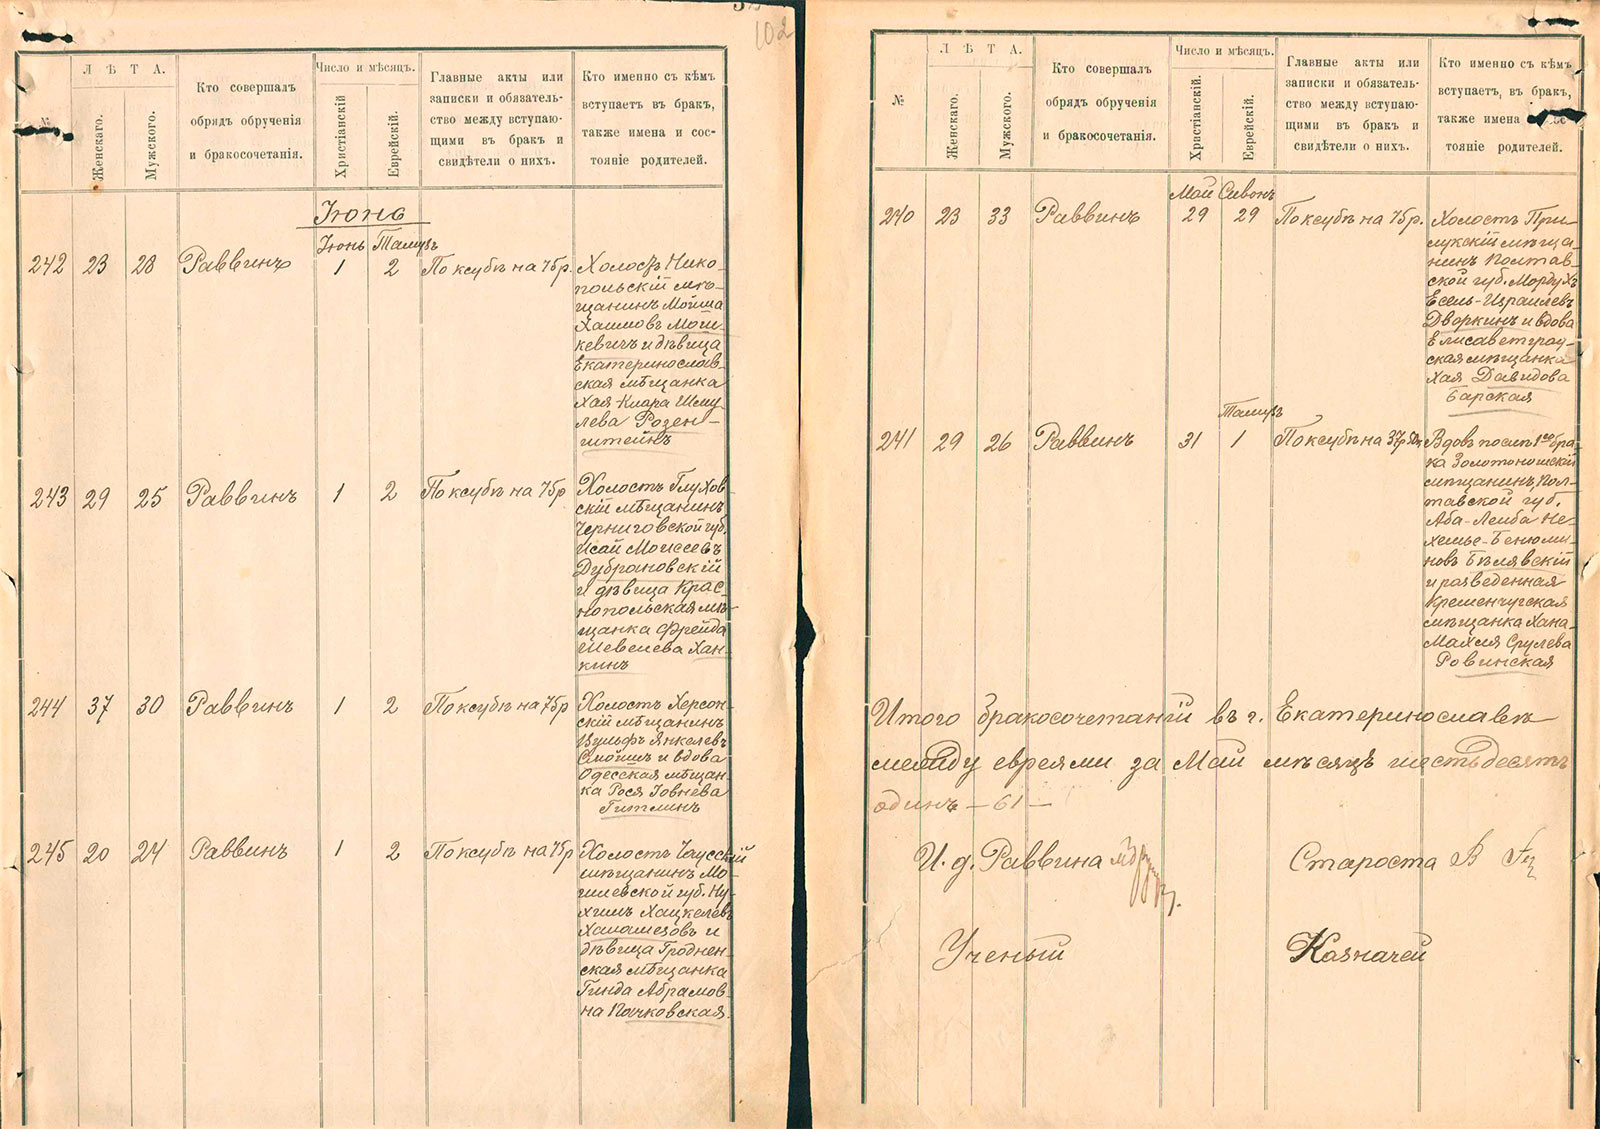 102
№
ЛѢТА.
Женскаго.
Мужского.
Кто совершалъ
обрядъ обрученія
и бракосочетанія.
Число и мѣсяцъ.
Христіанскій
Еврейскій.
Главные акты или
записки и обязатель-
ство между вступаю-
щими въ бракъ и
свидѣтели о нихъ.
Кто именно съ кѣмъ
вступаетъ въ бракъ,
также имена и сос-
тояніе родителей.
Іюнь
Іюнь Тамузъ
242 23 28 Раввинъ 1 2 По ксубѣ на 75 р.
Холостъ Нико-
польскій мѣ-
щанинъ Мойша
Хаимовъ Мош-
кевичъ и дѣвица
Екатеринослав-
ская мѣщанка
Хая-Клара Шму-
лева Розен-
штейнъ
243 29 25 Раввинъ 1 2 По ксубѣ на 75 р
Холостъ Глухов-
скій мѣщанинъ,
Черниговской губ.
Исай Моисеевъ
Дубрановскій
и дѣвица Крас-
нопольская мѣ-
щанка Фрейда
Шевелева Хан-
кинъ
244 37 30 Раввинъ 1 2 По ксубѣ на 75 р
Холостъ Херсон-
скій мѣщанинъ
Вульфъ Янкелевъ
и вдова
Одесская мѣщан-
ка Рося Іовнева
Гитлинъ
245 20 24 Раввинъ 1 2 По ксубѣ на 75 р
Холостъ Чаусскій
мѣщанинъ Мо-
гилевской губ. Ну-
химъ Хацкелевъ
Халамезовъ и
дѣвица Гроднен-
ская мѣщанка
Гинда Абрамов-
на Пачковская.
№
ЛѢТА.
Женскаго.
Мужского.
Кто совершалъ
обрядъ обрученія
и бракосочетанія.
Число и мѣсяцъ.
Христіанскій
Еврейскій.
Главные акты или
записки и обязатель-
ство между вступаю-
щими въ бракъ и
свидѣтели о нихъ.
Кто именно съ кѣмъ
вступаетъ въ бракъ,
также имена
тояніе родителей.
Май Сивонъ
240 23 33 Раввинъ 29 29 По ксубѣ на 75 р.
Холостъ При-
лукскій мѣща-
нинъ Полтав-
ской губ. Мордухъ
Есель-Израилевъ
Дворкинъ и вдова
Елисаветград-
ская мѣщанка
Хая Давидова
Барская
Тамузъ
241 29 26 Раввинъ 31 1 По ксубѣ на 37 р 50 к
Вдовъ послѣ 1го бра-
ка Золотоношскій
мѣщанинъ, Пол-
тавской губ.
Аба-Лейба Не-
хемье-Бенюми-
новъ Бѣлявскій
и разведенная
Кременчугская
мѣщанка Хана-
Махля Срулева
Ровинская
Итого бракосочетаній въ г. Екатеринославѣ
между евреями за Май мѣсяцъ шестьдесятъ
одинъ — 61 —
И. д. Раввина
Староста В
Ученый
Казначей